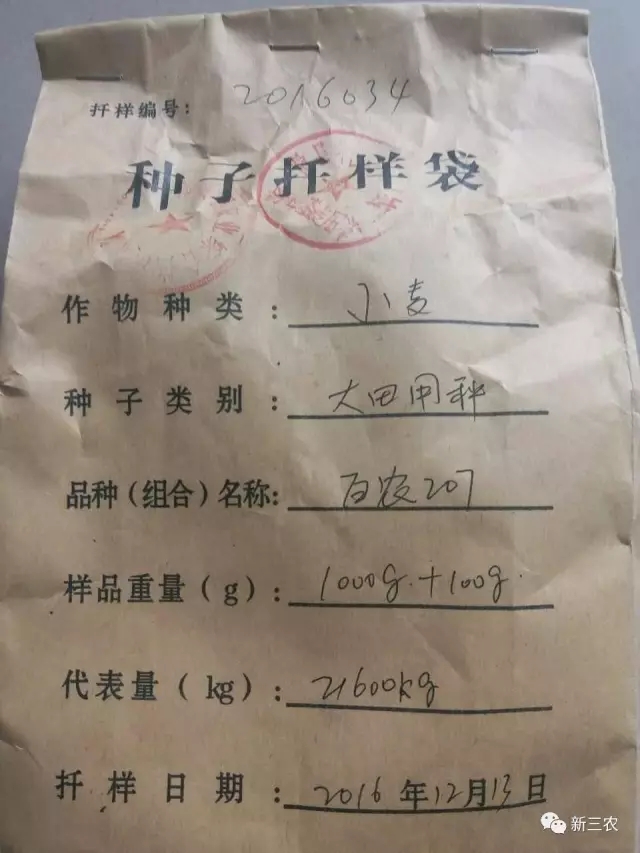 扦样编号: 2016034
种子扦样袋
作物种类: 小麦
种子类别: 大田用种
品种(组合)名称: 百农207
样品重量(g): 1000g.+100g.
代表量(kg): 21600kg
扦样日期: 2016年12月13日
新三农